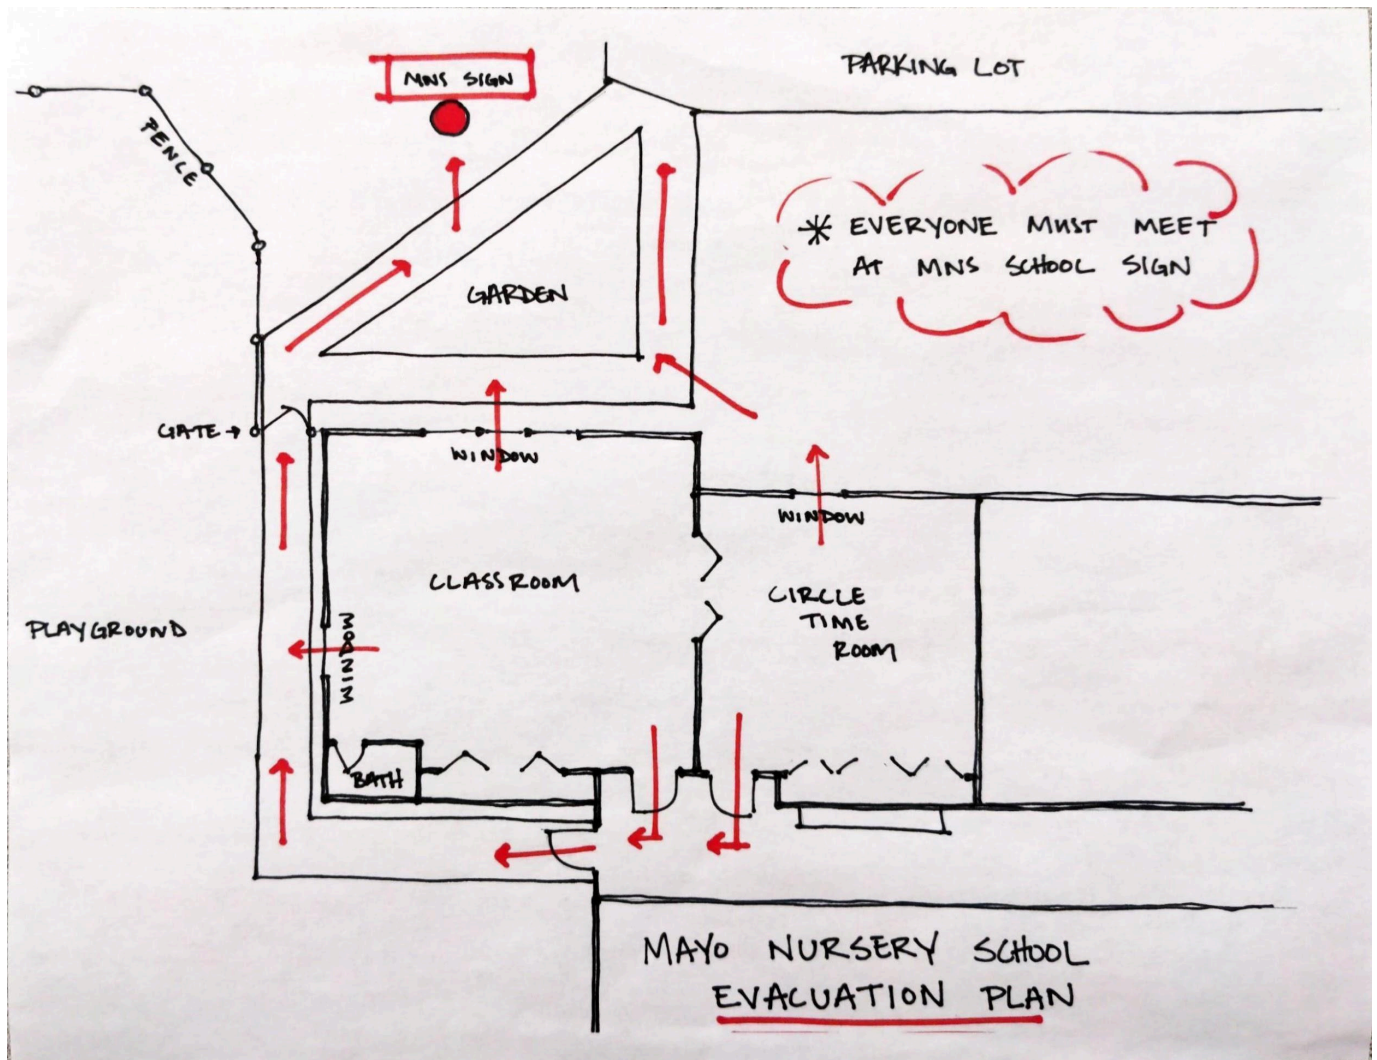 MNS SIGN
PARKING LOT
FENCE
* EVERYONE MUST MEET
AT MNS SCHOOL SIGN
GARDEN
GATE →
WINDOW
WINDOW
CLASSROOM
CIRCLE
TIME
ROOM
PLAYGROUND
WINDOW
BATH
MAYO NURSERY SCHOOL
EVACUATION PLAN